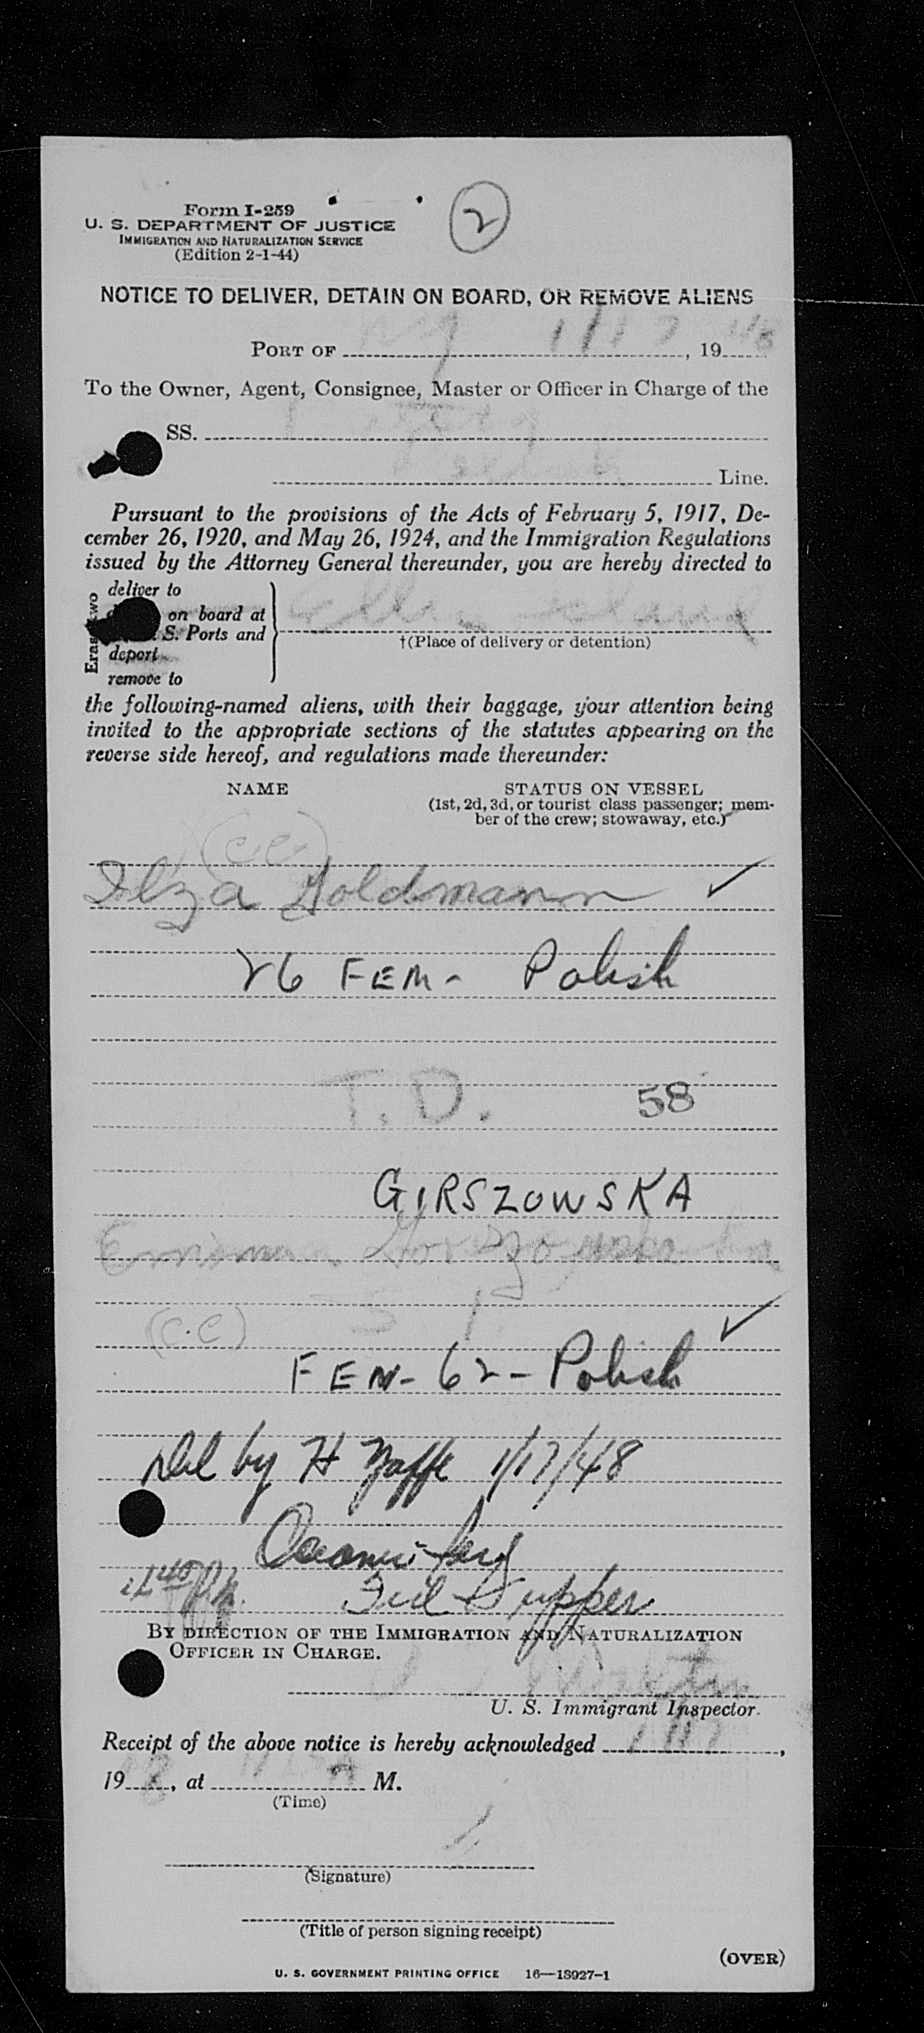 2
Form I-259
U. S. DEPARTMENT OF JUSTICE
IMMIGRATION AND NATURALIZATION SERVICE
(Edition 2-1-44)
NOTICE TO DELIVER, DETAIN ON BOARD, OR REMOVE ALIENS
PORT OF NY 1/17, 1948
To the Owner, Agent, Consignee, Master or Officer in Charge of the
SS.
Line.
Pursuant to the provisions of the Acts of February 5, 1917, De-
cember 26, 1920, and May 26, 1924, and the Immigration Regulations
issued by the Attorney General thereunder, you are hereby directed to
deliver to
on board at
S. Ports and
deport
remove to
Ellis Island
†(Place of delivery or detention)
the following-named aliens, with their baggage, your attention being
invited to the appropriate sections of the statutes appearing on the
reverse side hereof, and regulations made thereunder:
NAME STATUS ON VESSEL
(1st, 2d, 3d, or tourist class passenger; mem-
ber of the crew; stowaway, etc.)
(c.c.)
Ilza Goldmann ✓
26 FEM- Polish
T. D. 58
GIRSZOWSKA
(c.c) ✓
FEM- 62 - Polish
Del by H Yaffe 1/17/48
BY DIRECTION OF THE IMMIGRATION AND NATURALIZATION
OFFICER IN CHARGE.
U. S. Immigrant Inspector.
Receipt of the above notice is hereby acknowledged 1/17,
1948, at M.
(Time)
(Signature)
(Title of person signing receipt)
(OVER)
U. S. GOVERNMENT PRINTING OFFICE 16—18927-1